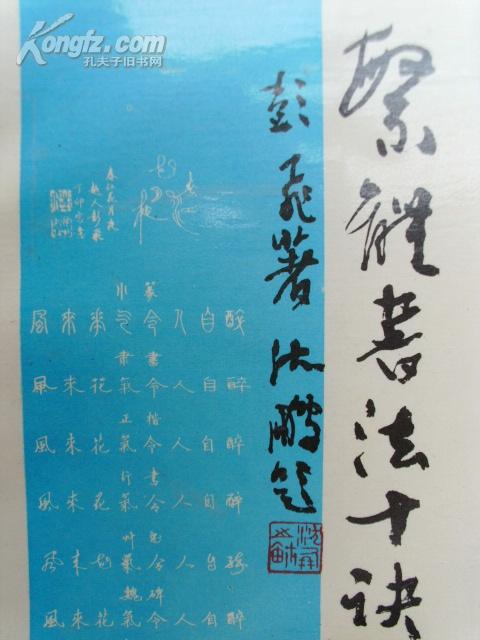 Kongfz.com
孔夫子旧书网
繁體書法十訣
彭飛著 沈鵬題
小篆
風來花氣令人自醉
隶書
風來花氣令人自醉
正楷
風來花氣令人自醉
行書
風來花氣令人自醉
艸書
風來花氣令人自醉
魏碑
風來花氣令人自醉